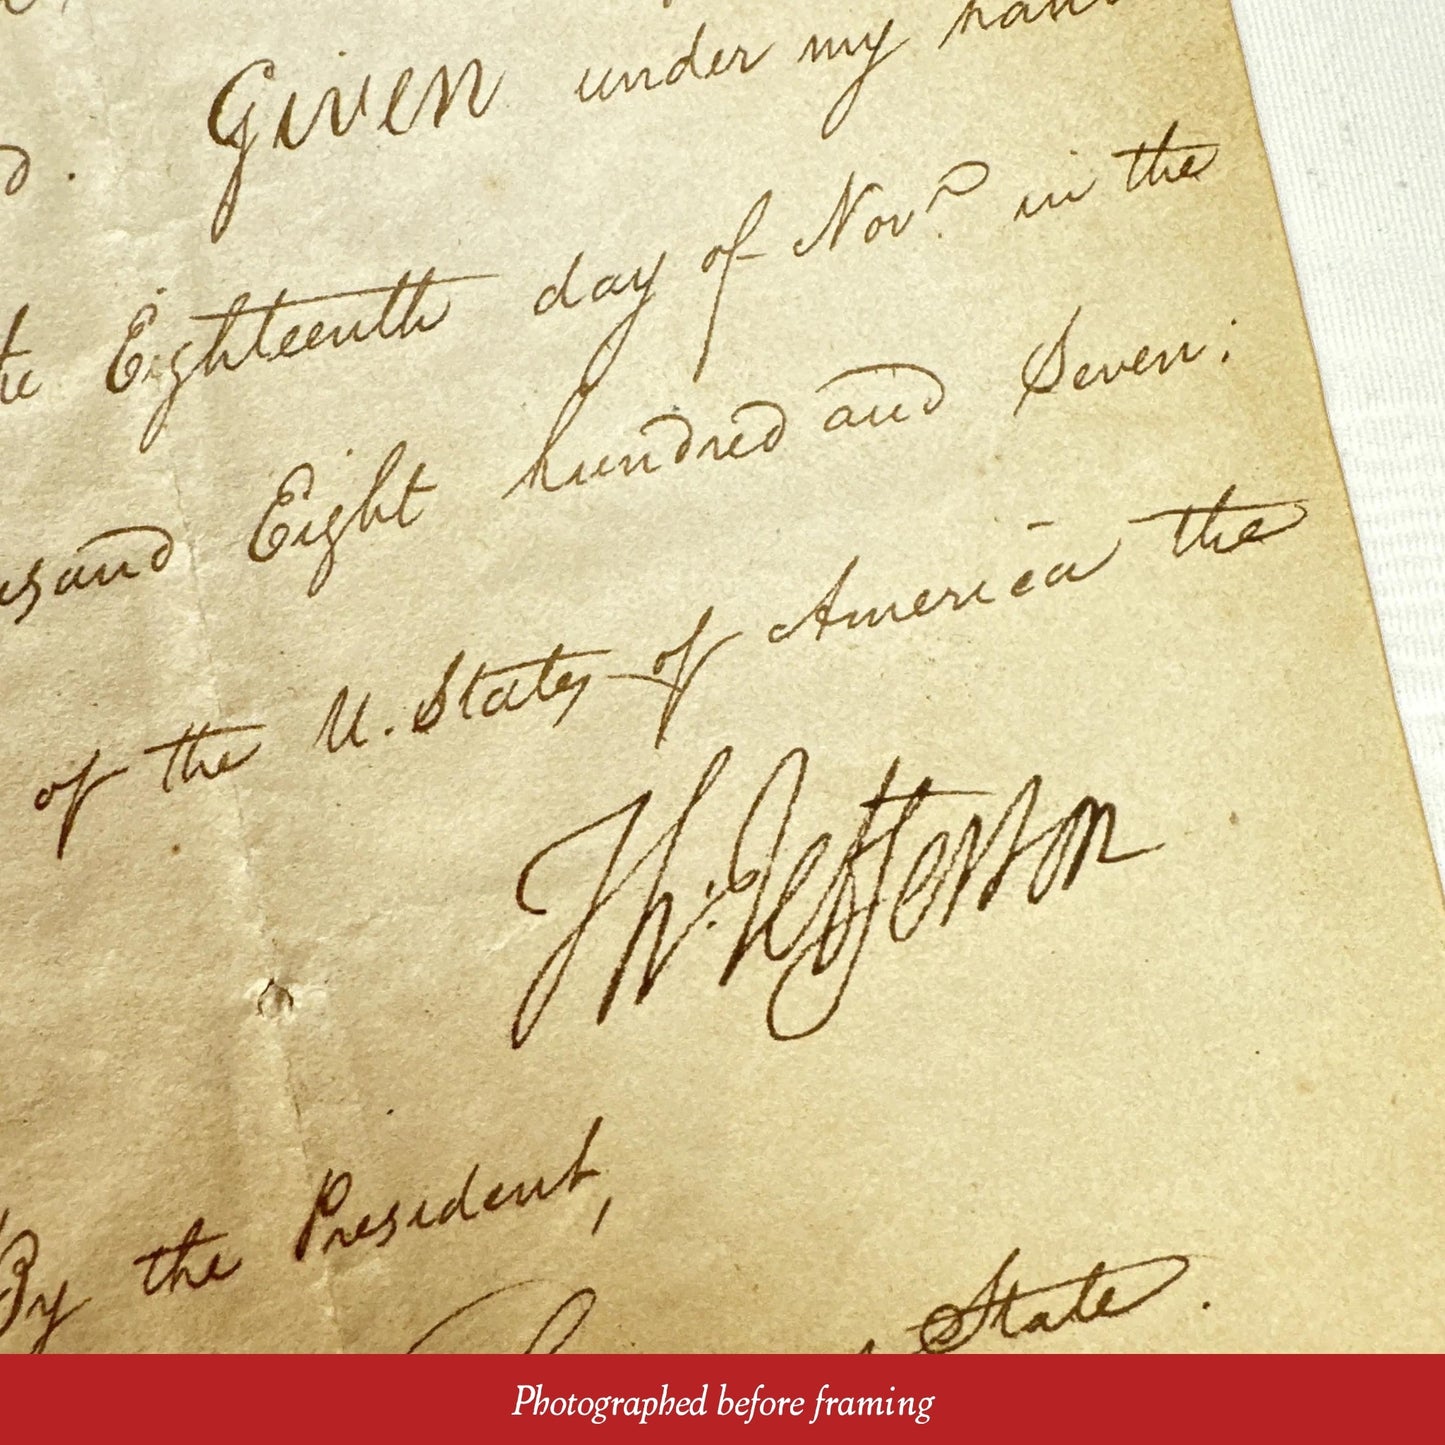 Given under my hand
d.
the Eighteenth day of Nov.r in the
usand Eight hundred and Seven;
of the U. States of America the
Th: Jefferson
By the President,
State.
Photographed before framing